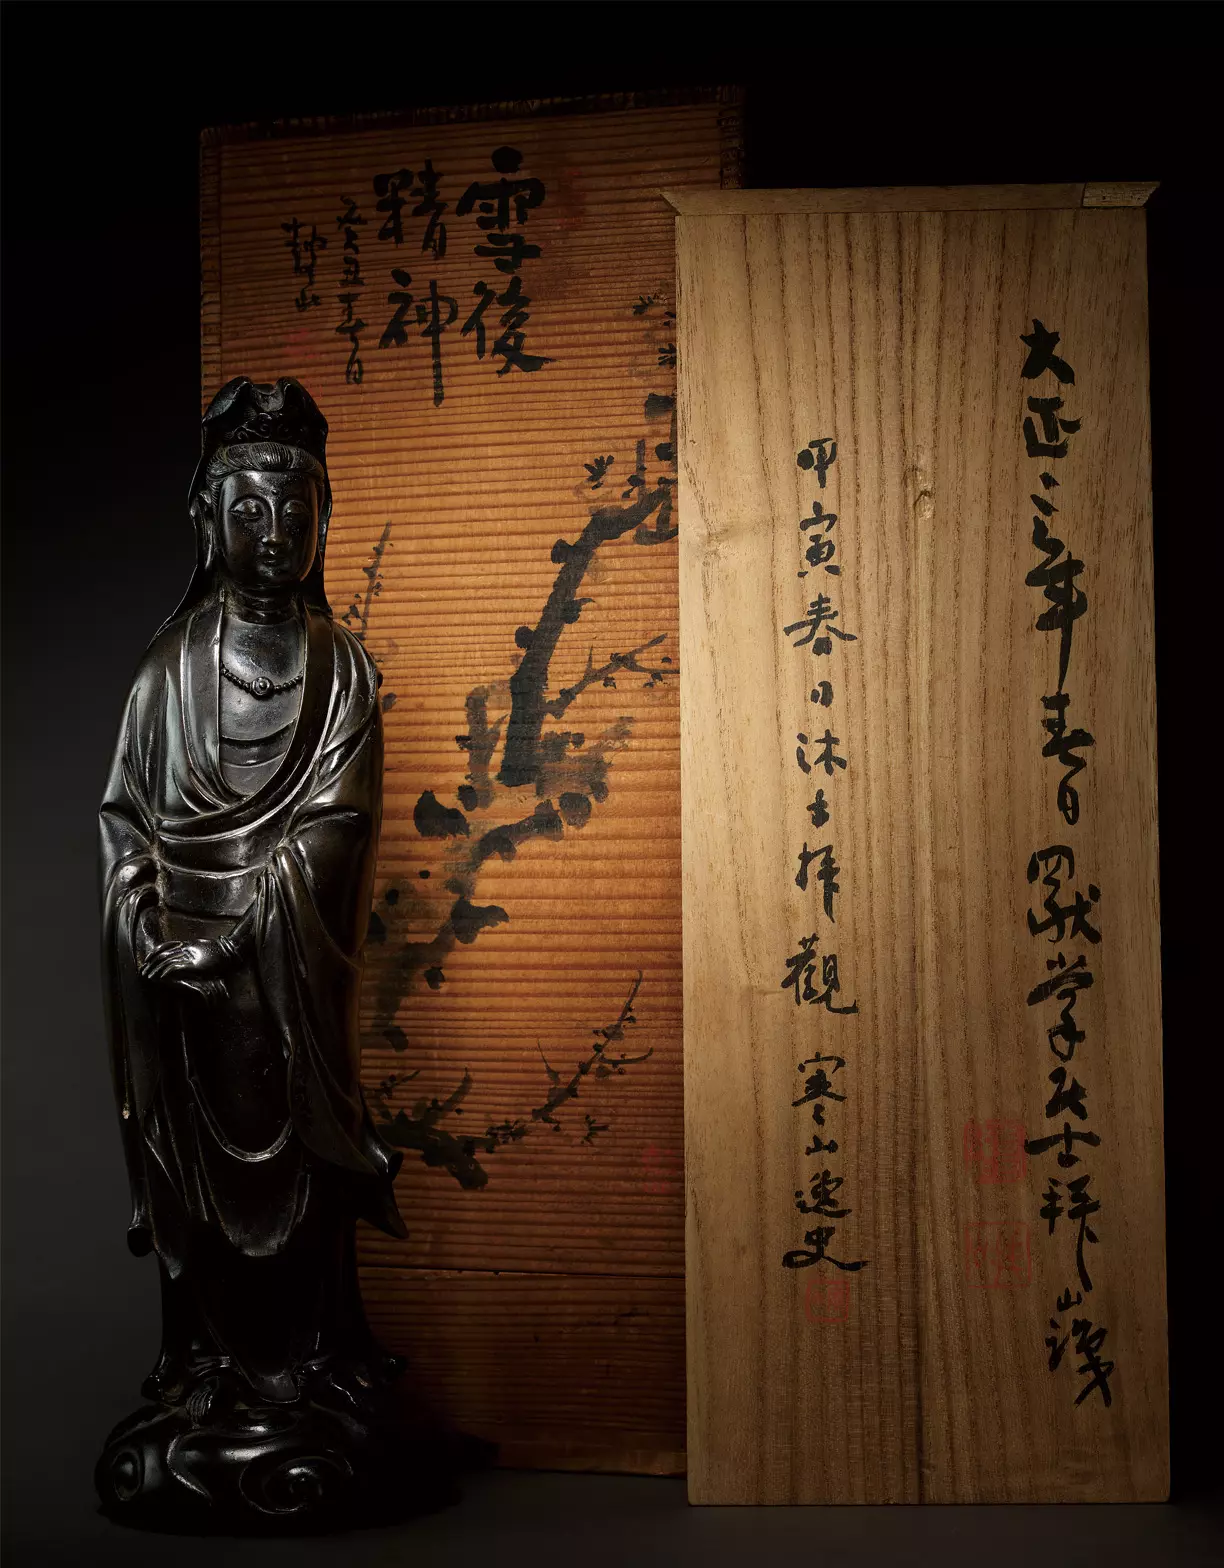 雪後
精神
大正三年春日獻学居士拝山識
甲寅春日沐手拝觀 寒山逸史